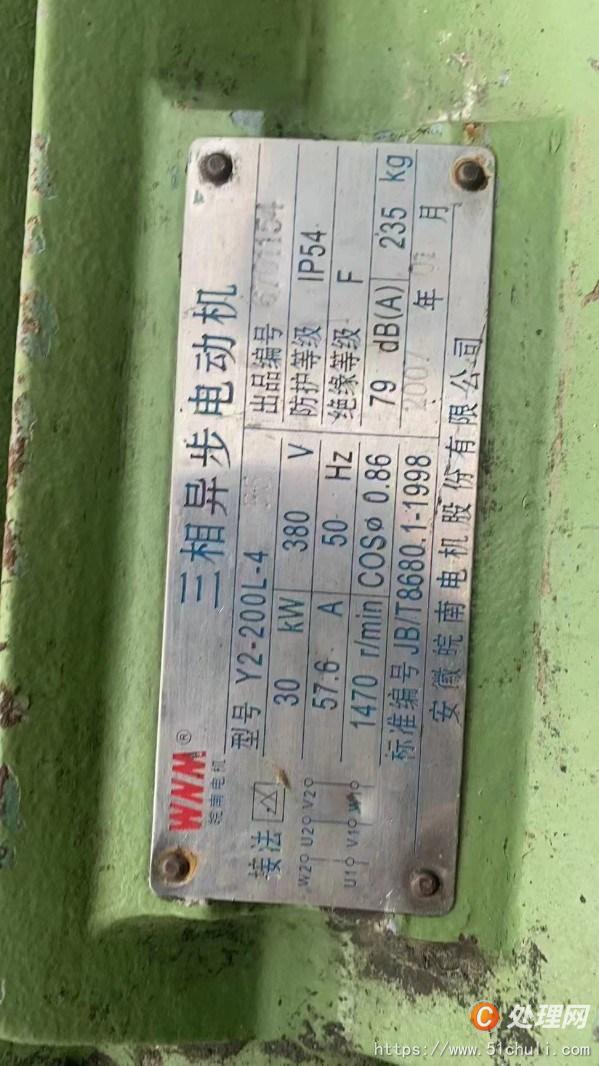 WNM®
皖南电机
三相异步电动机
型号 Y2-200L-4 出品编号 6701154
30 kW 380 V 防护等级 IP54
57.6 A 50 Hz 绝缘等级 F
1470 r/min COSø 0.86 79 dB(A) 235 kg
标准编号 JB/T8680.1-1998 2007 年 01 月
安徽皖南电机股份有限公司
接法
W2 U2 V2
U1 V1 W1
C 处理网
https://www.51chuli.com